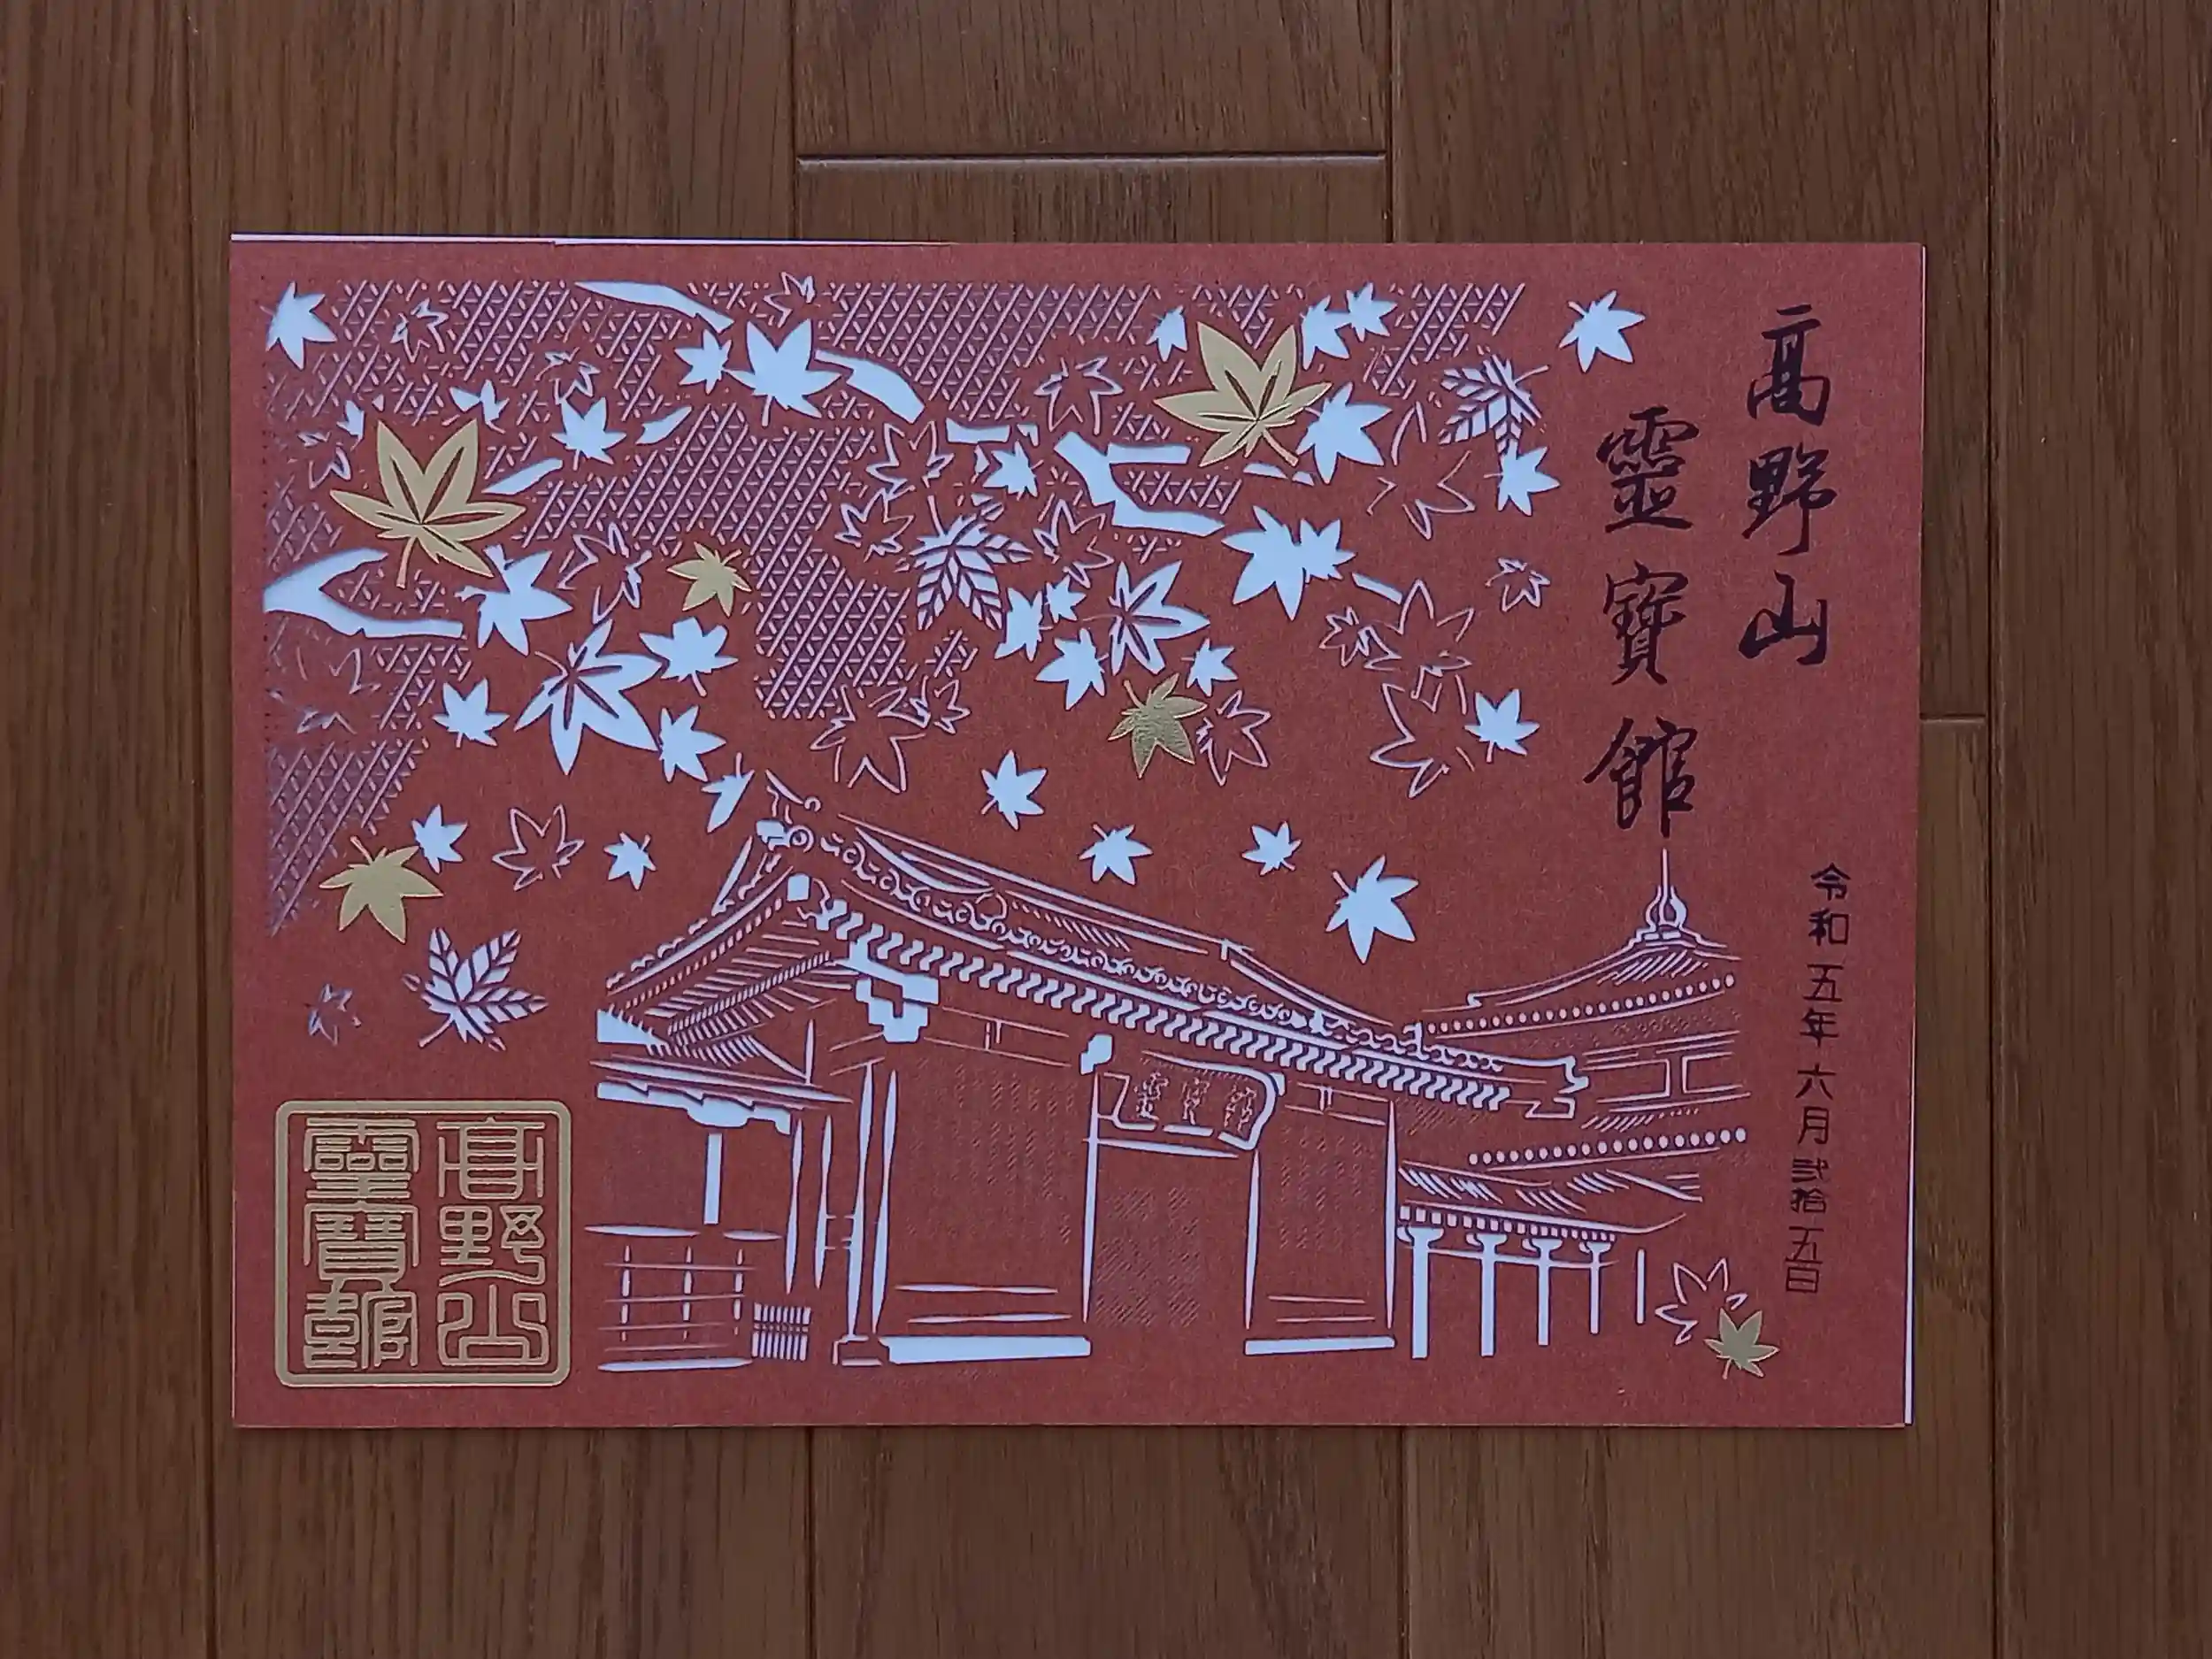 高野山
靈寶館
令和五年六月弐拾五日
靈寶館
高野山
靈寶館